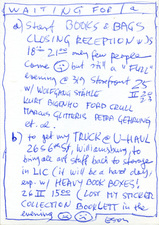 WAITING FOR
a) Stand BOOKS & BAGS
CLOSING RECEPTION @ 35
18th 21:00 only few people
came but 7th a "FULL"
evening @ Storefront 35
w/ WOLFGANG STAEHLE
KURT BIGENHO FORD CRULL
MARCUS GLITTERIS PETRA GEHRING
et. al.
b) to get my TRUCK @ U-HAUL
Williamsburg, to
bring all art stuff back to storage
in LIC (it will be a hard day)
esp. w/ HEAVY BOOK BOXES!
26 II 15:00 (LOST MY STICKER
COLLECTION BOOKLETT in the
evening